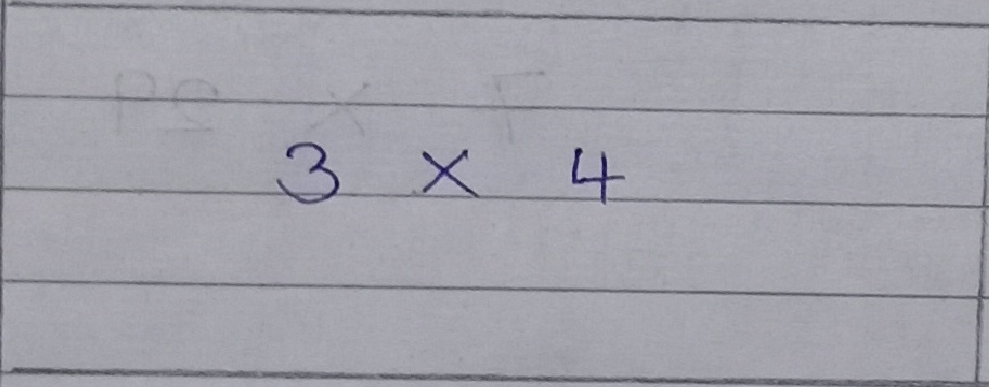 3 × 4